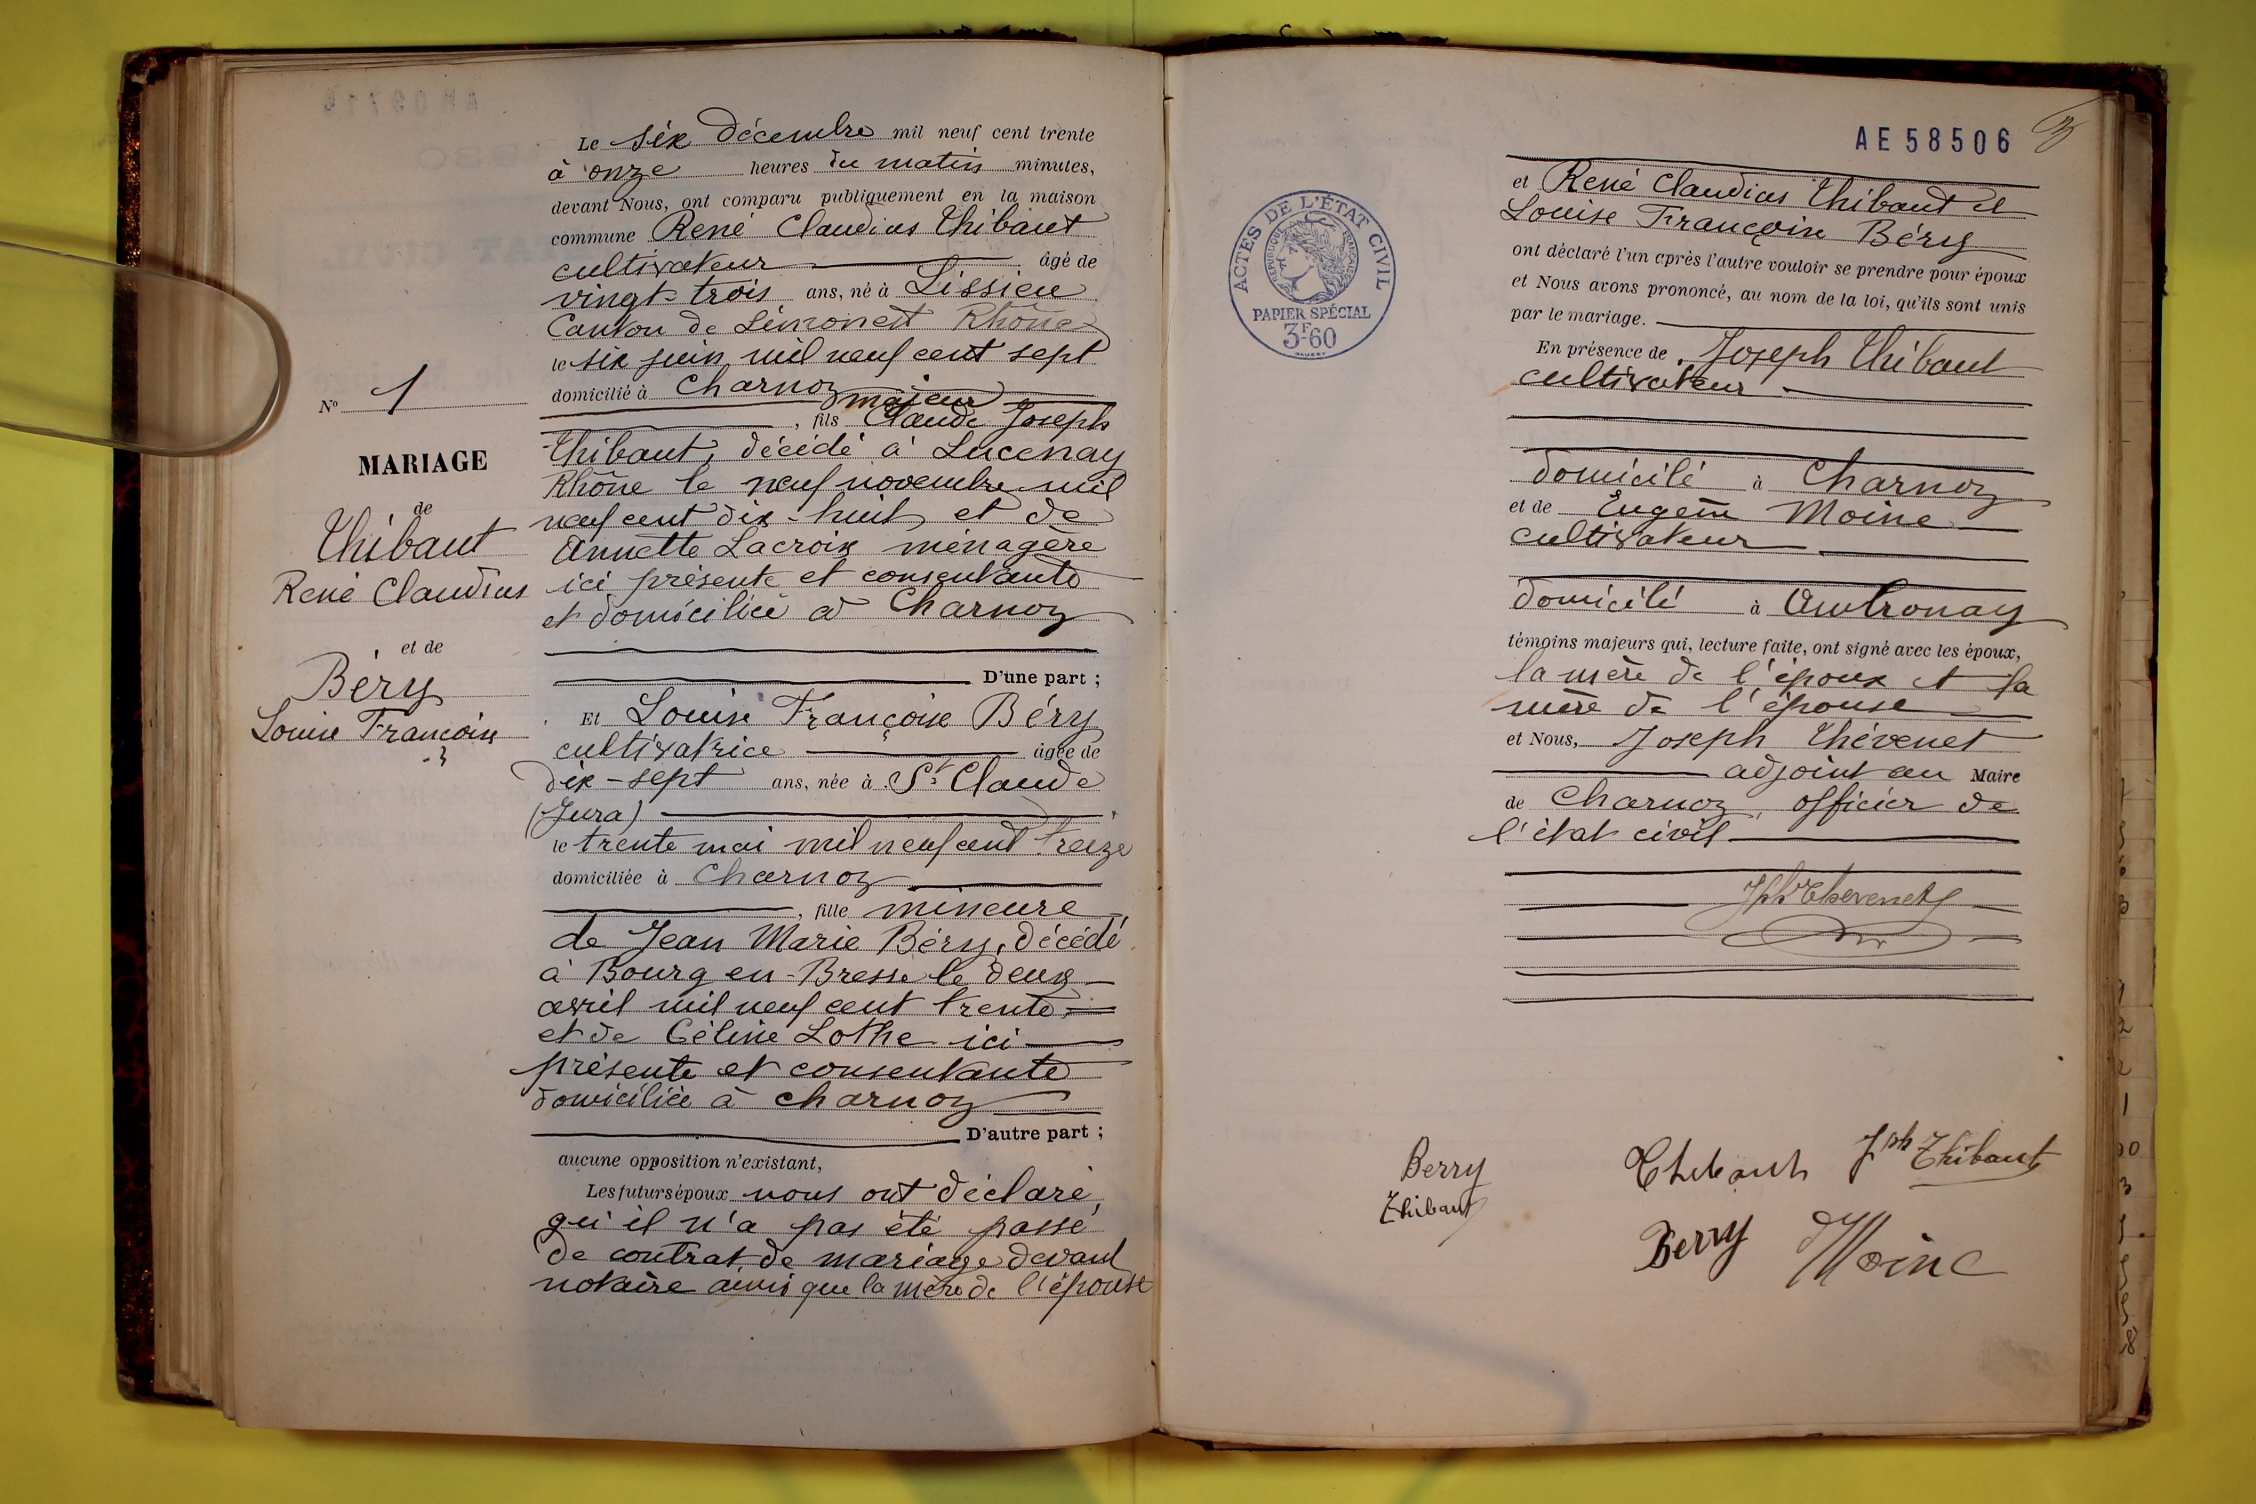 Le six décembre mil neuf cent trente
à onze heures du matin minutes,
devant Nous, ont comparu publiquement en la maison
commune René Claudius Thibaut
cultivateur âgé de
vingt-trois ans, né à Lissieu
Canton de Limonest Rhône
le six juin mil neuf cent sept
domicilié à Charnoz
majeur
, fils Claude Joseph
Thibaut, décédé à Lucenay
Rhône le neuf novembre mil
neuf cent dix-huit et de
Annette Lacroix ménagère
ici présente et consentante
et domiciliée à Charnoz
D'une part ;
Et Louise Françoise Béry
cultivatrice âgée de
dix-sept ans, née à St Claude
(Jura)
le trente mai mil neuf cent treize
domiciliée à Charnoz
, fille mineure
de Jean Marie Béry, décédé
à Bourg en-Bresse le deux
avril mil neuf cent trente
et de Céline Lothe ici
présente et consentante
domiciliée à Charnoz
D'autre part ;
aucune opposition n'existant,
Les futurs époux nous ont déclaré
qu'il n'a pas été passé
de contrat de mariage devant
notaire ainsi que la mère de l'épouse
No 1
MARIAGE
de
Thibaut
René Claudius
et de
Béry
Louise Françoise
AE 58506
ACTES DE L'ÉTAT CIVIL
RÉPUBLIQUE FRANÇAISE
PAPIER SPÉCIAL
3F60
et René Claudius Thibaut et
Louise Françoise Béry
ont déclaré l'un après l'autre vouloir se prendre pour époux
et Nous avons prononcé, au nom de la loi, qu'ils sont unis
par le mariage.
En présence de Joseph Thibaut
cultivateur
domicilié à Charnoz
et de Eugène Moine
cultivateur
domicilié à Ambronay
témoins majeurs qui, lecture faite, ont signé avec les époux,
la mère de l'époux et la
mère de l'épouse
et Nous, Joseph Thévenet
adjoint au Maire
de Charnoz, officier de
l'état civil
Jph Thevenet
Berry
Thibaut
Thibaut
Jph Thibaut
Berry
Moine